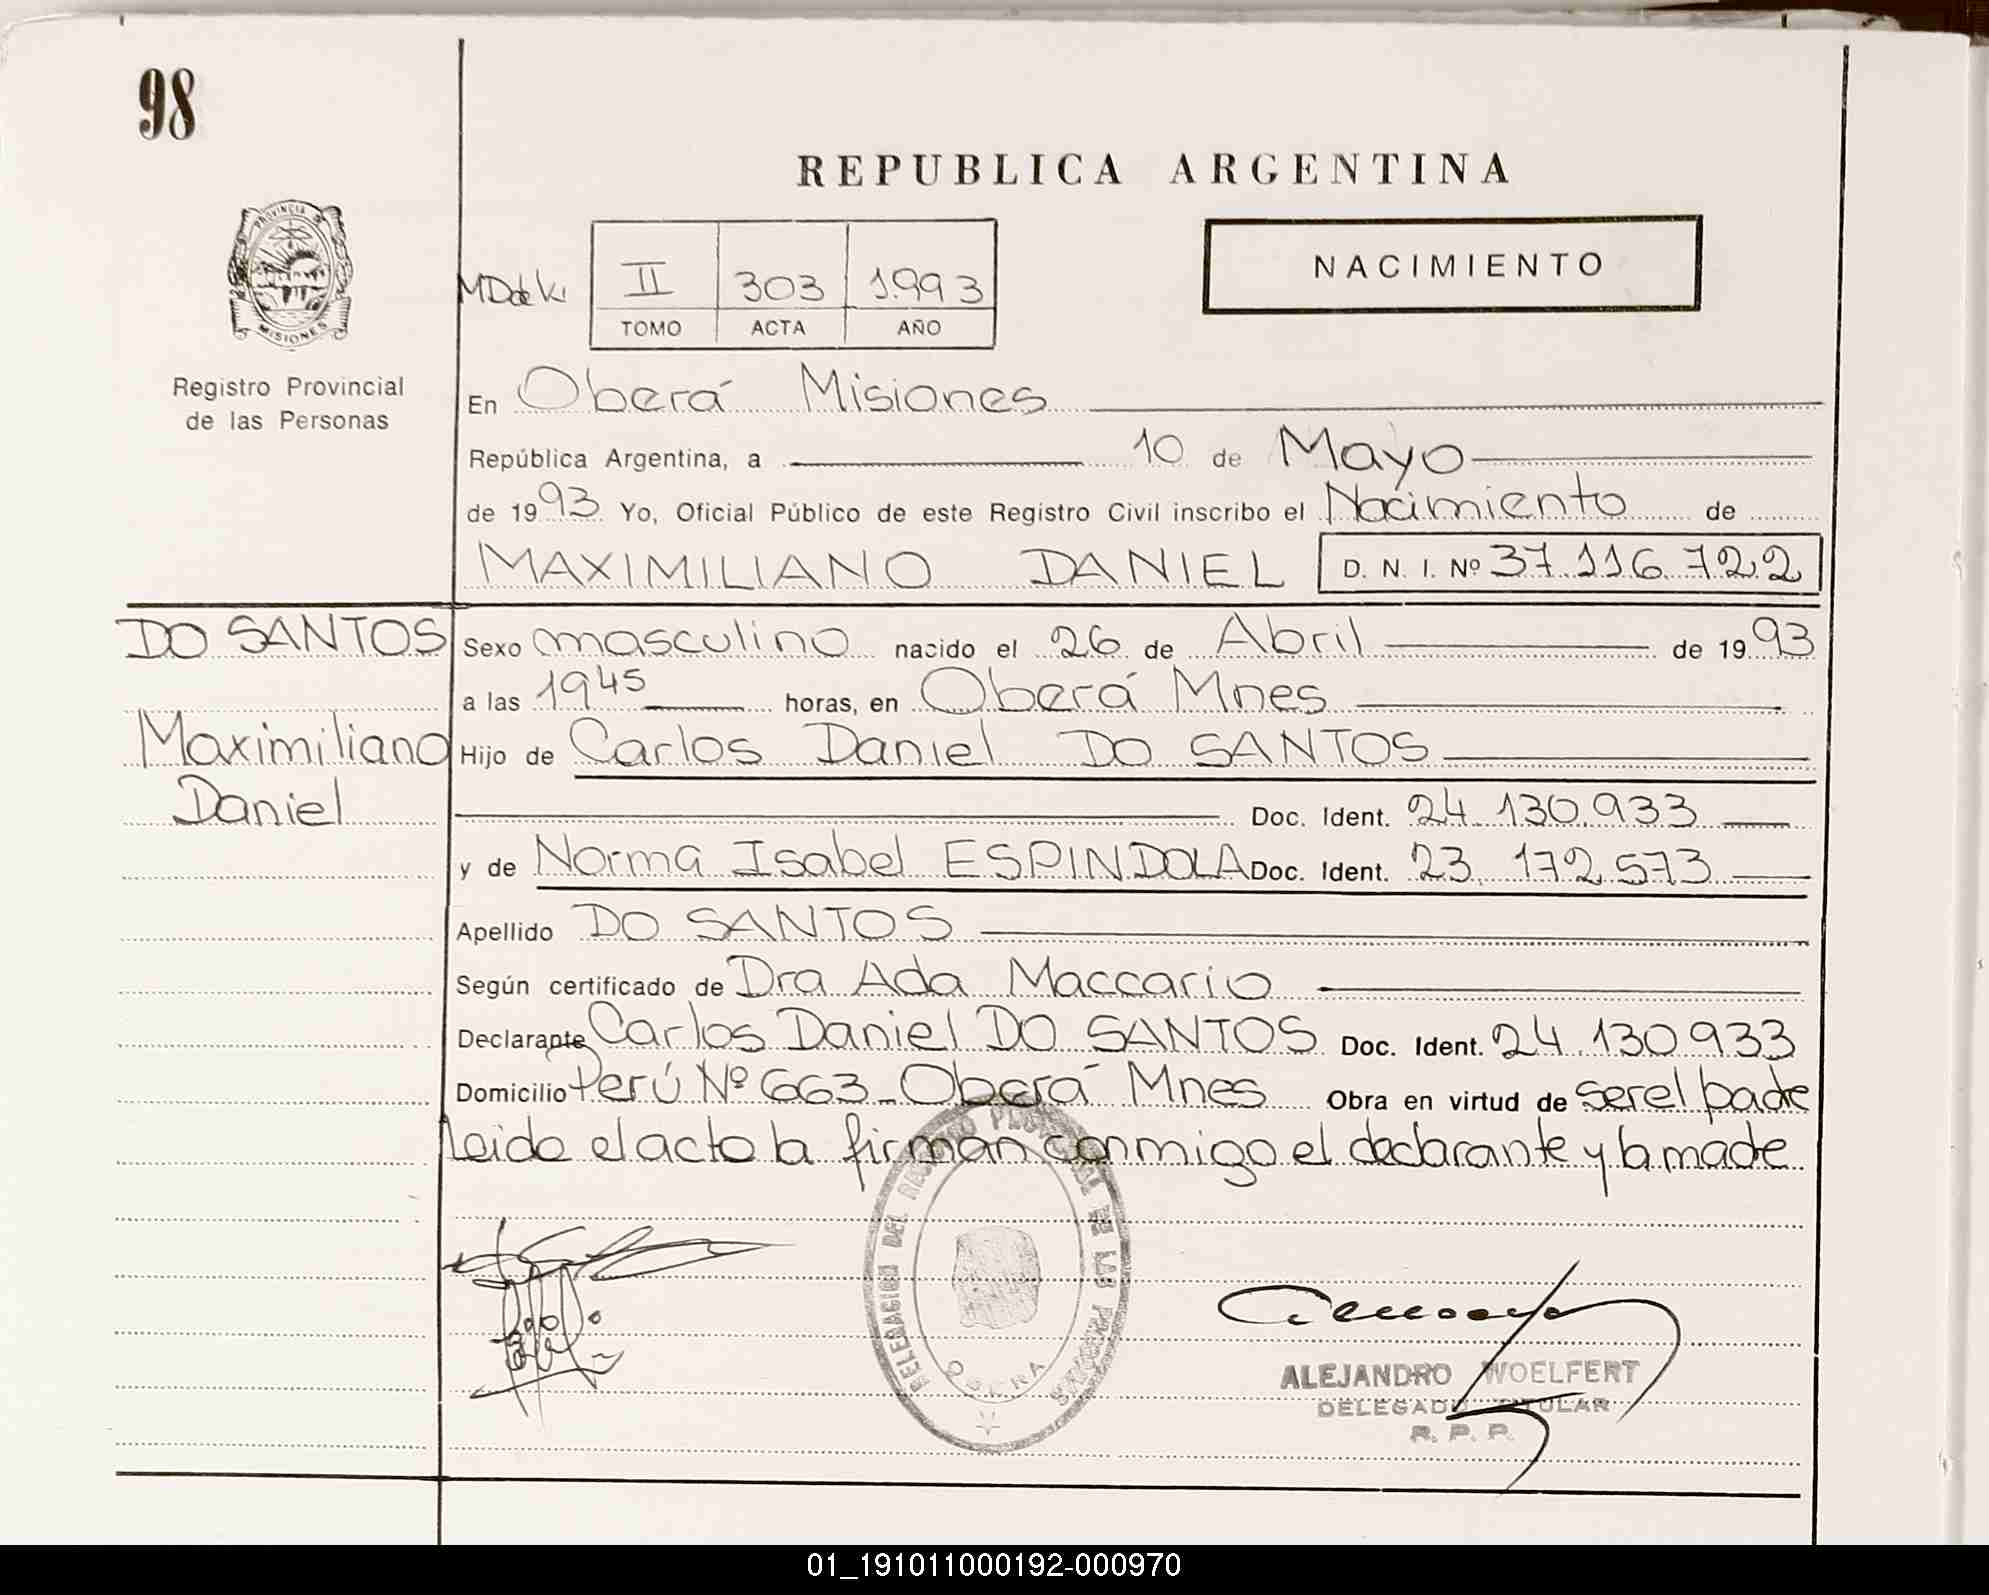 98
REPUBLICA ARGENTINA
PROVINCIA DE
MISIONES
NACIMIENTO
II 303 1993
TOMO ACTA AÑO
Registro Provincial
de las Personas
En Oberá Misiones
República Argentina, a 10 de Mayo
de 1993 Yo, Oficial Público de este Registro Civil inscribo el Nacimiento de
MAXIMILIANO DANIEL D. N. I. Nº 37.116.722
DO SANTOS Sexo masculino nacido el 26 de Abril de 1993
a las 1945 horas, en Oberá Mnes
Maximiliano Hijo de Carlos Daniel DO SANTOS
Daniel Doc. Ident. 24.130.933
y de Norma Isabel ESPINDOLA Doc. Ident. 23.172.573
Apellido DO SANTOS
Según certificado de Dra Ada Maccario
Declarante Carlos Daniel DO SANTOS Doc. Ident. 24.130.933
Domicilio Perú Nº 663-Oberá Mnes Obra en virtud de ser el padre
Leido el acto la firman conmigo el declarante y la madre
DELEGACION DEL REGISTRO PROVINCIAL DE LAS PERSONAS
OBERA
ALEJANDRO WOELFERT
DELEGADO TITULAR
R. P. P.
01_191011000192-000970